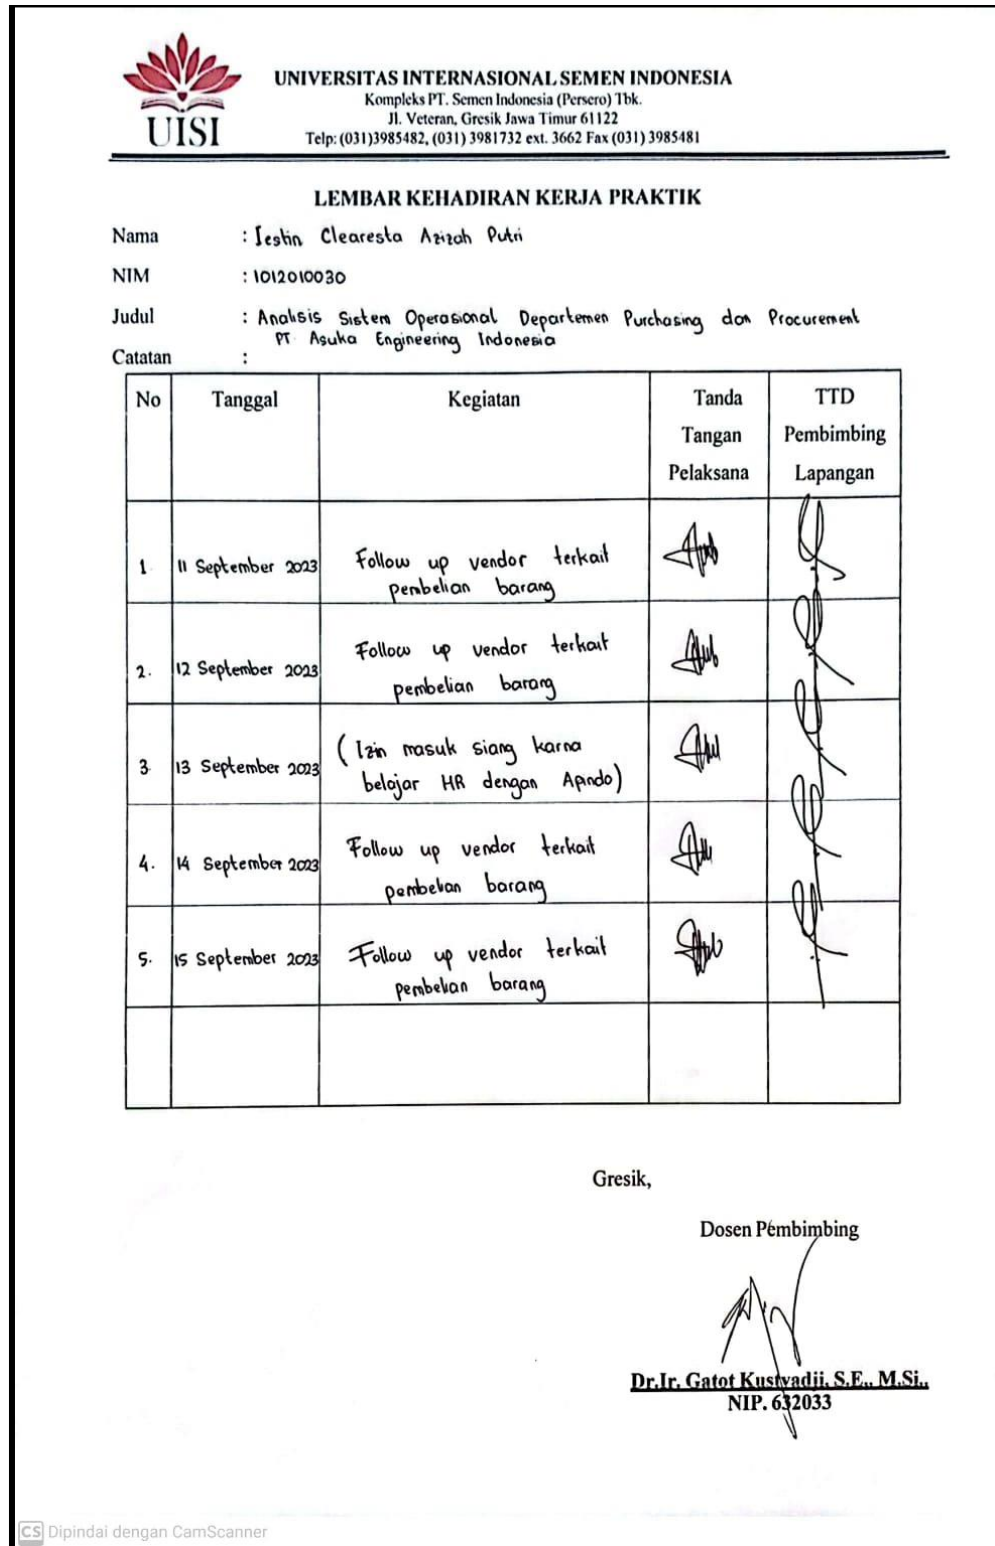 UISI
UNIVERSITAS INTERNASIONAL SEMEN INDONESIA
Kompleks PT. Semen Indonesia (Persero) Tbk.
Jl. Veteran, Gresik Jawa Timur 61122
Telp: (031)3985482, (031) 3981732 ext. 3662 Fax (031) 3985481
LEMBAR KEHADIRAN KERJA PRAKTIK
Nama : Iestin Clearesta Azizah Putri
NIM : 1012010030
Judul : Analisis Sistem Operasional Departemen Purchasing dan Procurement
PT Asuka Engineering Indonesia
Catatan :
No Tanggal Kegiatan Tanda Tangan Pelaksana TTD Pembimbing Lapangan
1 11 September 2023 Follow up vendor terkait
pembelian barang
2. 12 September 2023 Follow up vendor terkait
pembelian barang
3. 13 September 2023 (Izin masuk siang karna
belajar HR dengan Apindo)
4. 14 September 2023 Follow up vendor terkait
pembelian barang
5. 15 September 2023 Follow up vendor terkait
pembelian barang
Gresik,
Dosen Pembimbing
Dr.Ir. Gatot Kustyadji, S.E., M.Si.,
NIP. 632033
CS Dipindai dengan CamScanner